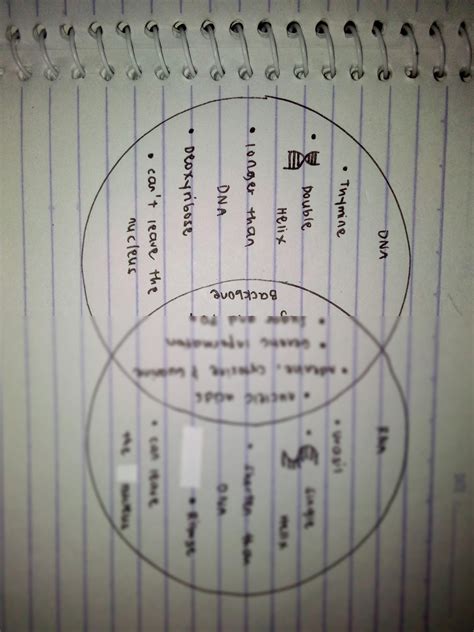 DNA
• Thymine
• Double
Helix
• longer than
DNA
• Deoxyribose
• can't leave the
nucleus
• nucleic acids
• adenine, cytosine & Guanine
• Genetic information
• Sugar and
Backbone
RNA
• single
Helix
• shorter than
DNA
• Ribose
• can leave
the nucleus